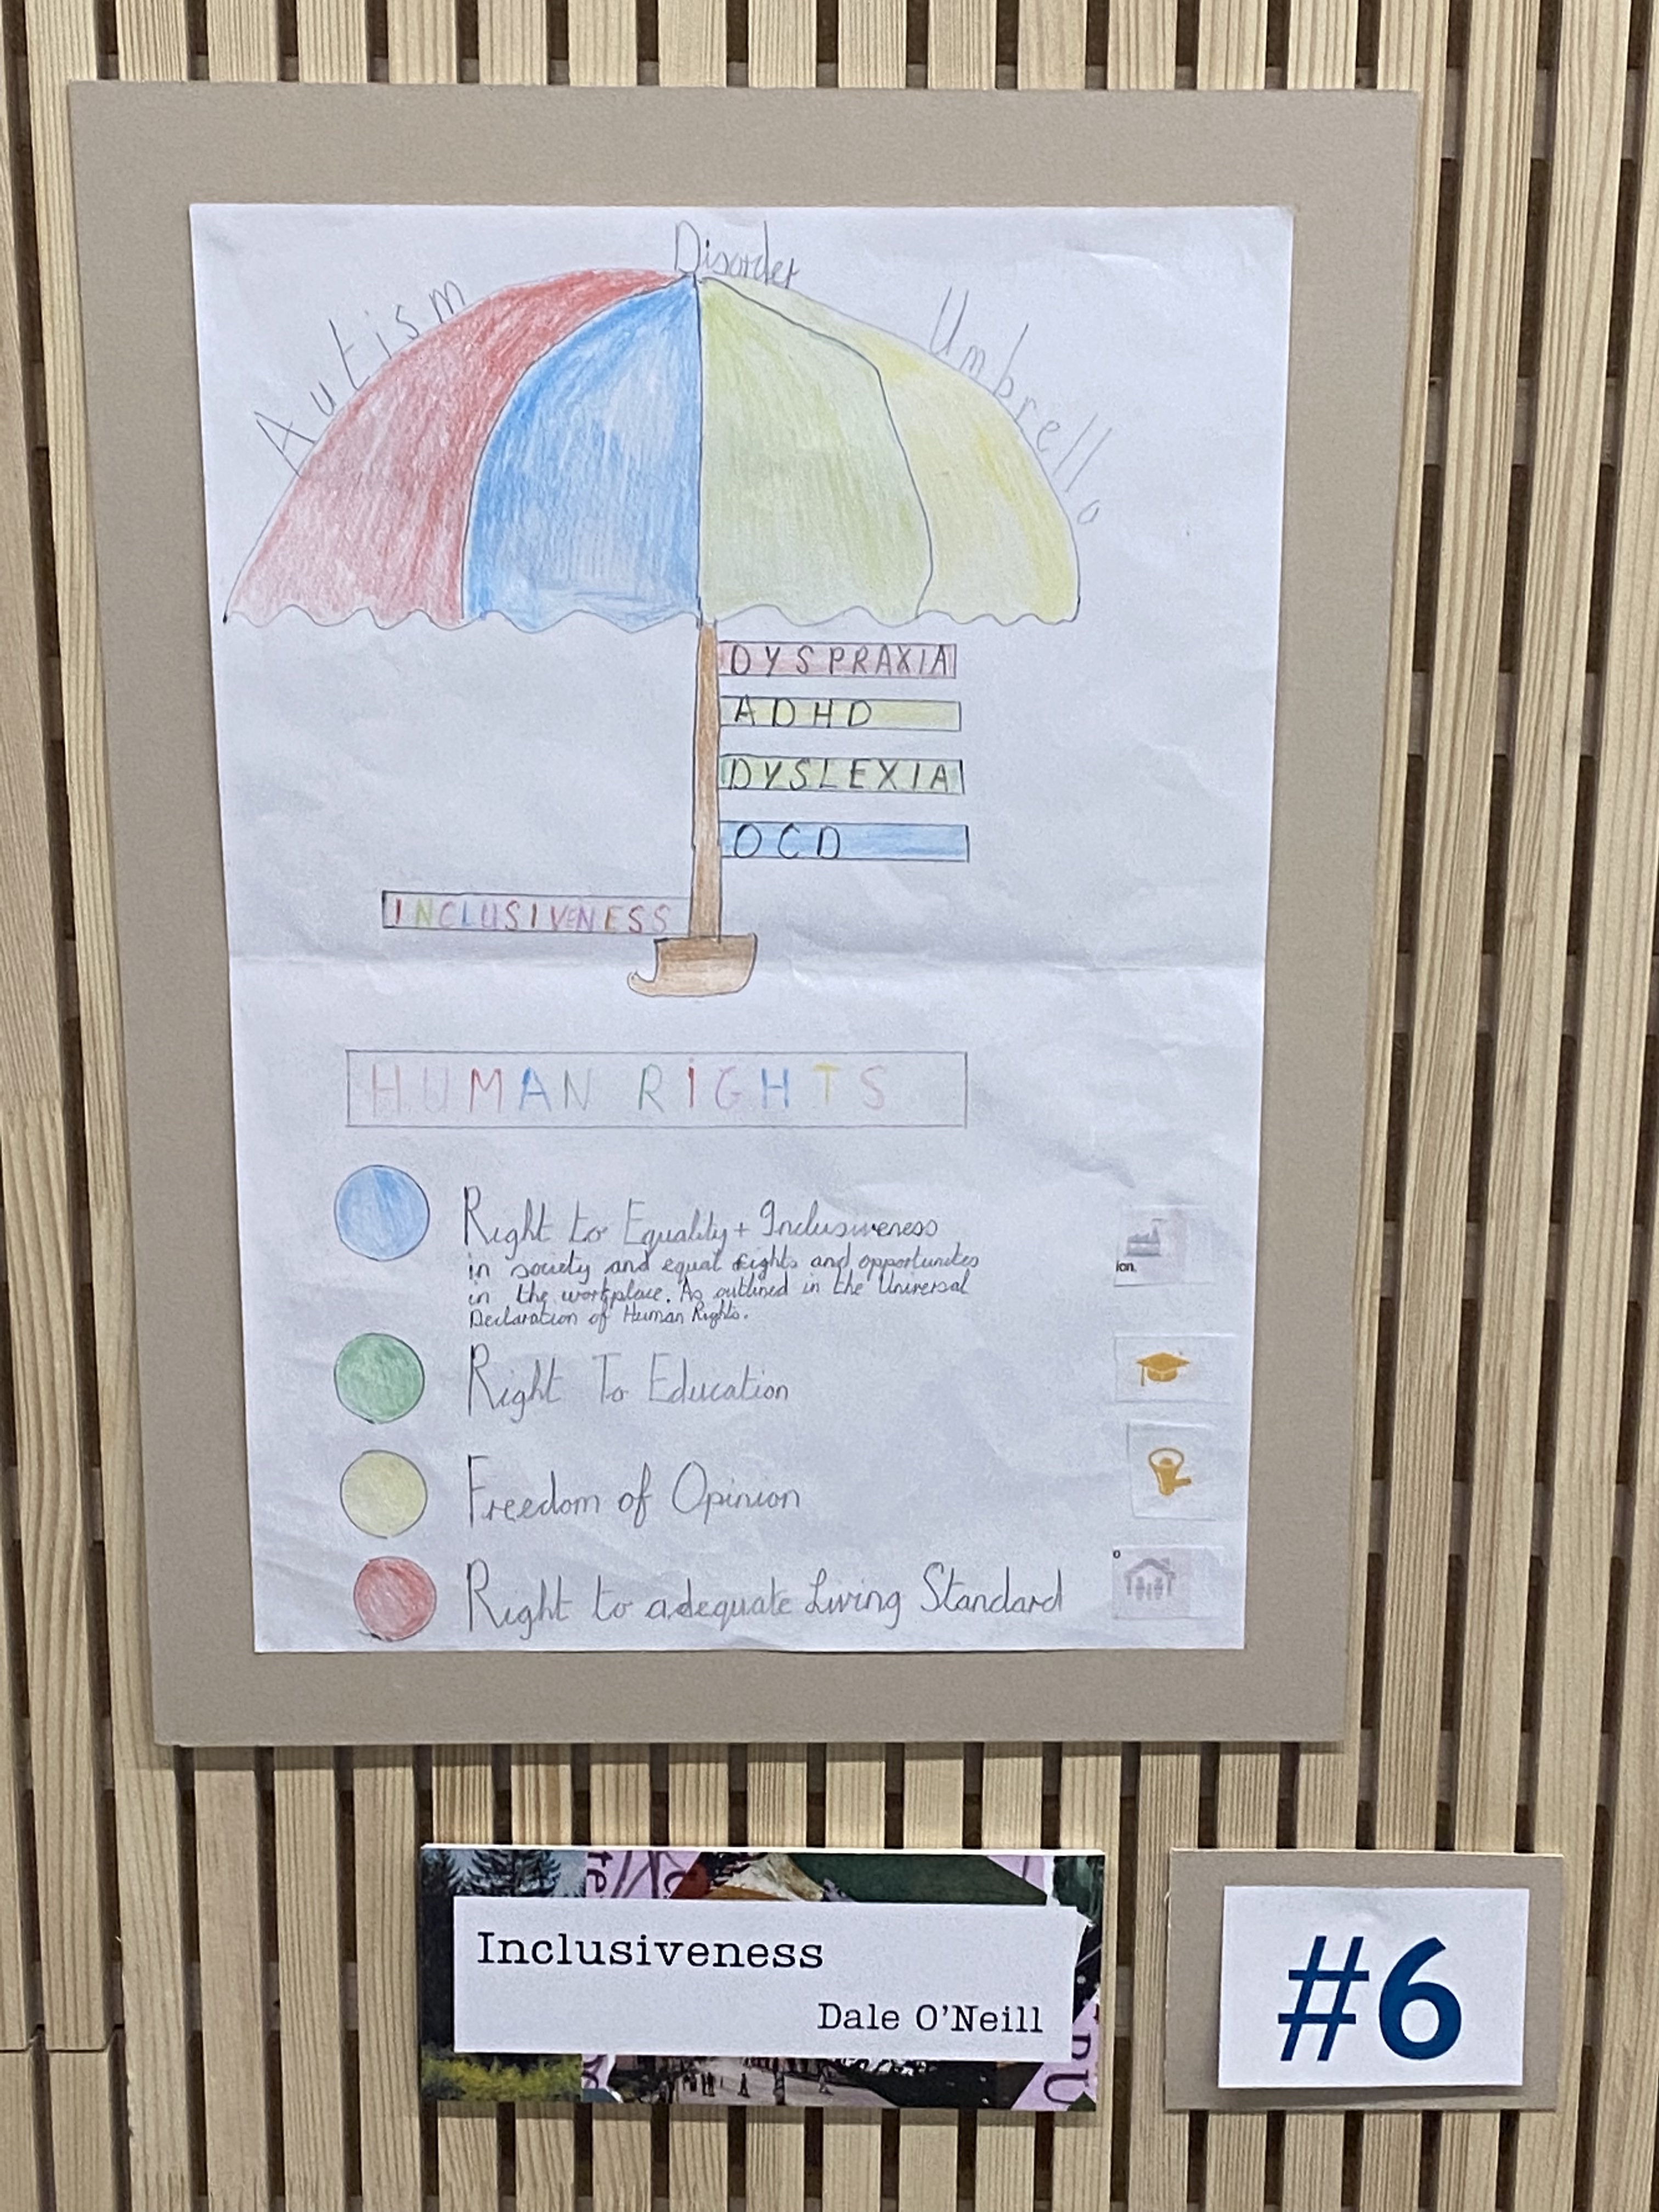 Autism Disorder Umbrella
DYSPRAXIA
ADHD
DYSLEXIA
OCD
INCLUSIVENESS
HUMAN RIGHTS
Right to Equality + Inclusiveness
in society and equal rights and opportunities
in the workplace. As outlined in the Universal
Declaration of Human Rights.
ion.
Right To Education
Freedom of Opinion
Right to adequate Living Standard
Inclusiveness
Dale O'Neill
#6